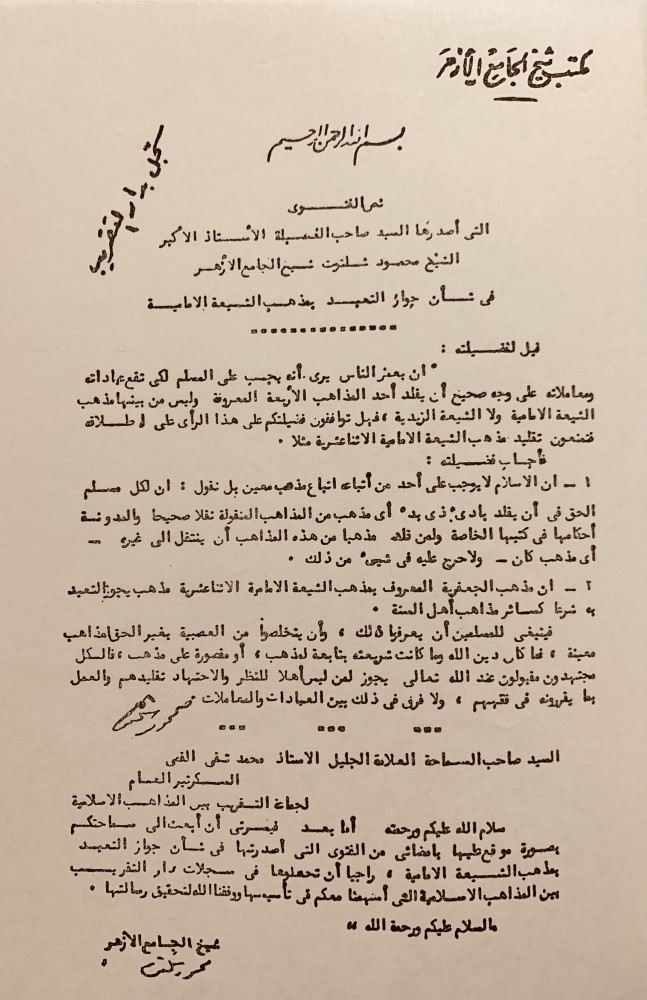 مكتب شيخ الجامع الأزهر
بسم الله الرحمن الرحيم
سجل بدار التقريب
نص الفتوى
التى أصدرها السيد صاحب الفضيلة الأستاذ الأكبر
الشيخ محمود شلتوت شيخ الجامع الأزهر
فى شأن جواز التعبد بمذهب الشيعة الامامية
قيل لفضيلته :
" ان بعض الناس يرى أنه يجب على المسلم لكى تقع عباداته
ومعاملاته على وجه صحيح أن يقلد أحد المذاهب الأربعة المعروفة وليس من بينها مذهب
الشيعة الامامية ولا الشيعة الزيدية ، فهل توافقون فضيلتكم على هذا الرأى على اطلاقه
فتمنعون تقليد مذهب الشيعة الامامية الاثنا عشرية مثلا .
فأجاب فضيلته :
١ - ان الاسلام لا يوجب على أحد من أتباعه اتباع مذهب معين بل نقول : ان لكل مسلم
الحق فى أن يقلد بادئ ذى بدء أى مذهب من المذاهب المنقولة نقلا صحيحا والمدونة
أحكامها فى كتبها الخاصة ولمن قلد مذهبا من هذه المذاهب أن ينتقل الى غيره -
أى مذهب كان - ولا حرج عليه فى شىء من ذلك .
٢ - ان مذهب الجعفرية المعروف بمذهب الشيعة الامامية الاثنا عشرية مذهب يجوز التعبد
به شرعا كسائر مذاهب أهل السنة .
فينبغى للمسلمين أن يعرفوا ذلك ، وأن يتخلصوا من العصبية بغير الحق لمذاهب
معينة ، فما كان دين الله وما كانت شريعته بتابعة لمذهب ، أو مقصورة على مذهب ، فالكل
مجتهدون مقبولون عند الله تعالى يجوز لمن ليس أهلا للنظر والاجتهاد تقليدهم والعمل
بما يقررونه فى فقههم ، ولا فرق فى ذلك بين العبادات والمعاملات .
محمود شلتوت
السيد صاحب السماحة العلامة الجليل الاستاذ محمد تقى القمى
السكرتير العام
لجماعة التقريب بين المذاهب الاسلامية
سلام الله عليكم ورحمته أما بعد فيسرنى أن أبعث الى سماحتكم
بصورة موقع عليها بامضائى من الفتوى التى أصدرتها فى شأن جواز التعبد
بمذهب الشيعة الامامية ، راجيا أن تحفظوها فى سجلات دار التقريب
بين المذاهب الاسلامية التى أسهمنا معكم فى تأسيسها ووفقنا الله لتحقيق رسالتها .
والسلام عليكم ورحمة الله ،،
شيخ الجامع الأزهر
محمود شلتوت